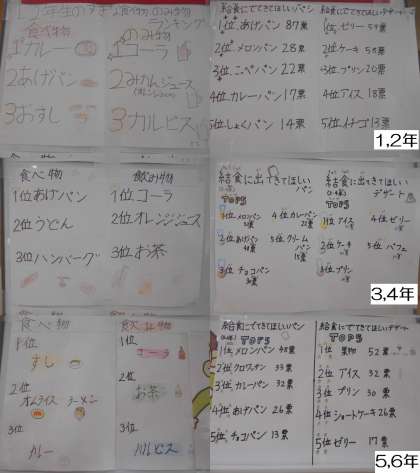 1,2年生のすきな食べ物のみ物
ランキング
食べ物
のみ物
1カレー
1コーラ
2あげパン
2みかんジュース
3おすし
3カルピス
給食にでてきてほしいパン
1位、あげパン 87票
2位、メロンパン 28票
3位、こっぺパン 22票
4位、カレーパン 17票
5位、しょくパン 14票
給食にでてきてほしいデザート
1位、ゼリー
2位、ケーキ
3位、プリン 20票
4位、アイス 18票
5位、イチゴ 13票
1,2年
食べ物
1位あげパン
2位うどん
3位ハンバーグ
飲み物
1位コーラ
2位オレンジジュース
3位お茶
給食に出てきてほしい
パン
TOP5
1位メロンパン
2位あげパン
3位チョコパン
4位カレーパン
5位クリームパン
給食に出てきてほしい
デザート
TOP5
1位アイス
2位ケーキ
3位プリン
4位ゼリー
5位パフェ
3,4年
食べ物
1位
すし
2位
オムライス ラーメン
3位
カレー
飲み物
1位
コーラ
2位
お茶
3位
カルピス
給食にでてきてほしいパン
TOP5
1位、メロンパン
2位、クロワッサン 33票
3位、カレーパン 32票
4位、あげパン 26票
5位、チョコパン 13票
給食にでてきてほしいデザート
TOP5
1位 果物 52票
2位 アイス 32票
3位 プリン 30票
4位 ショートケーキ 26票
5位 ゼリー 17票
5,6年